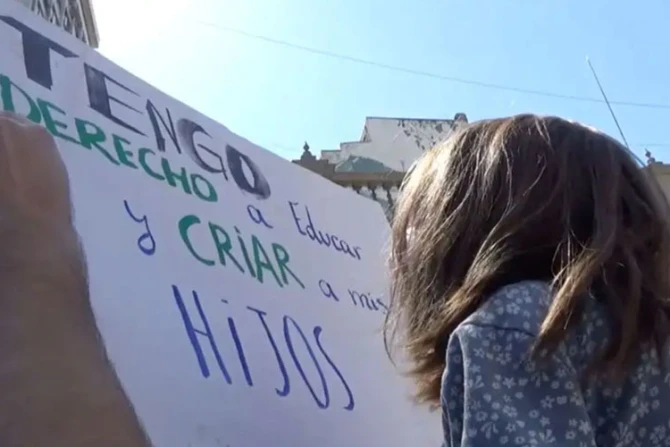 TENGO
DERECHO a Educar
y CRiAR a mis
HiJOS